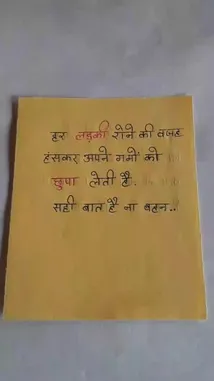 हर लड़की रोने की वजह
हंसकर अपने गमों को
छुपा लेती है.
सही बात है ना बहन..